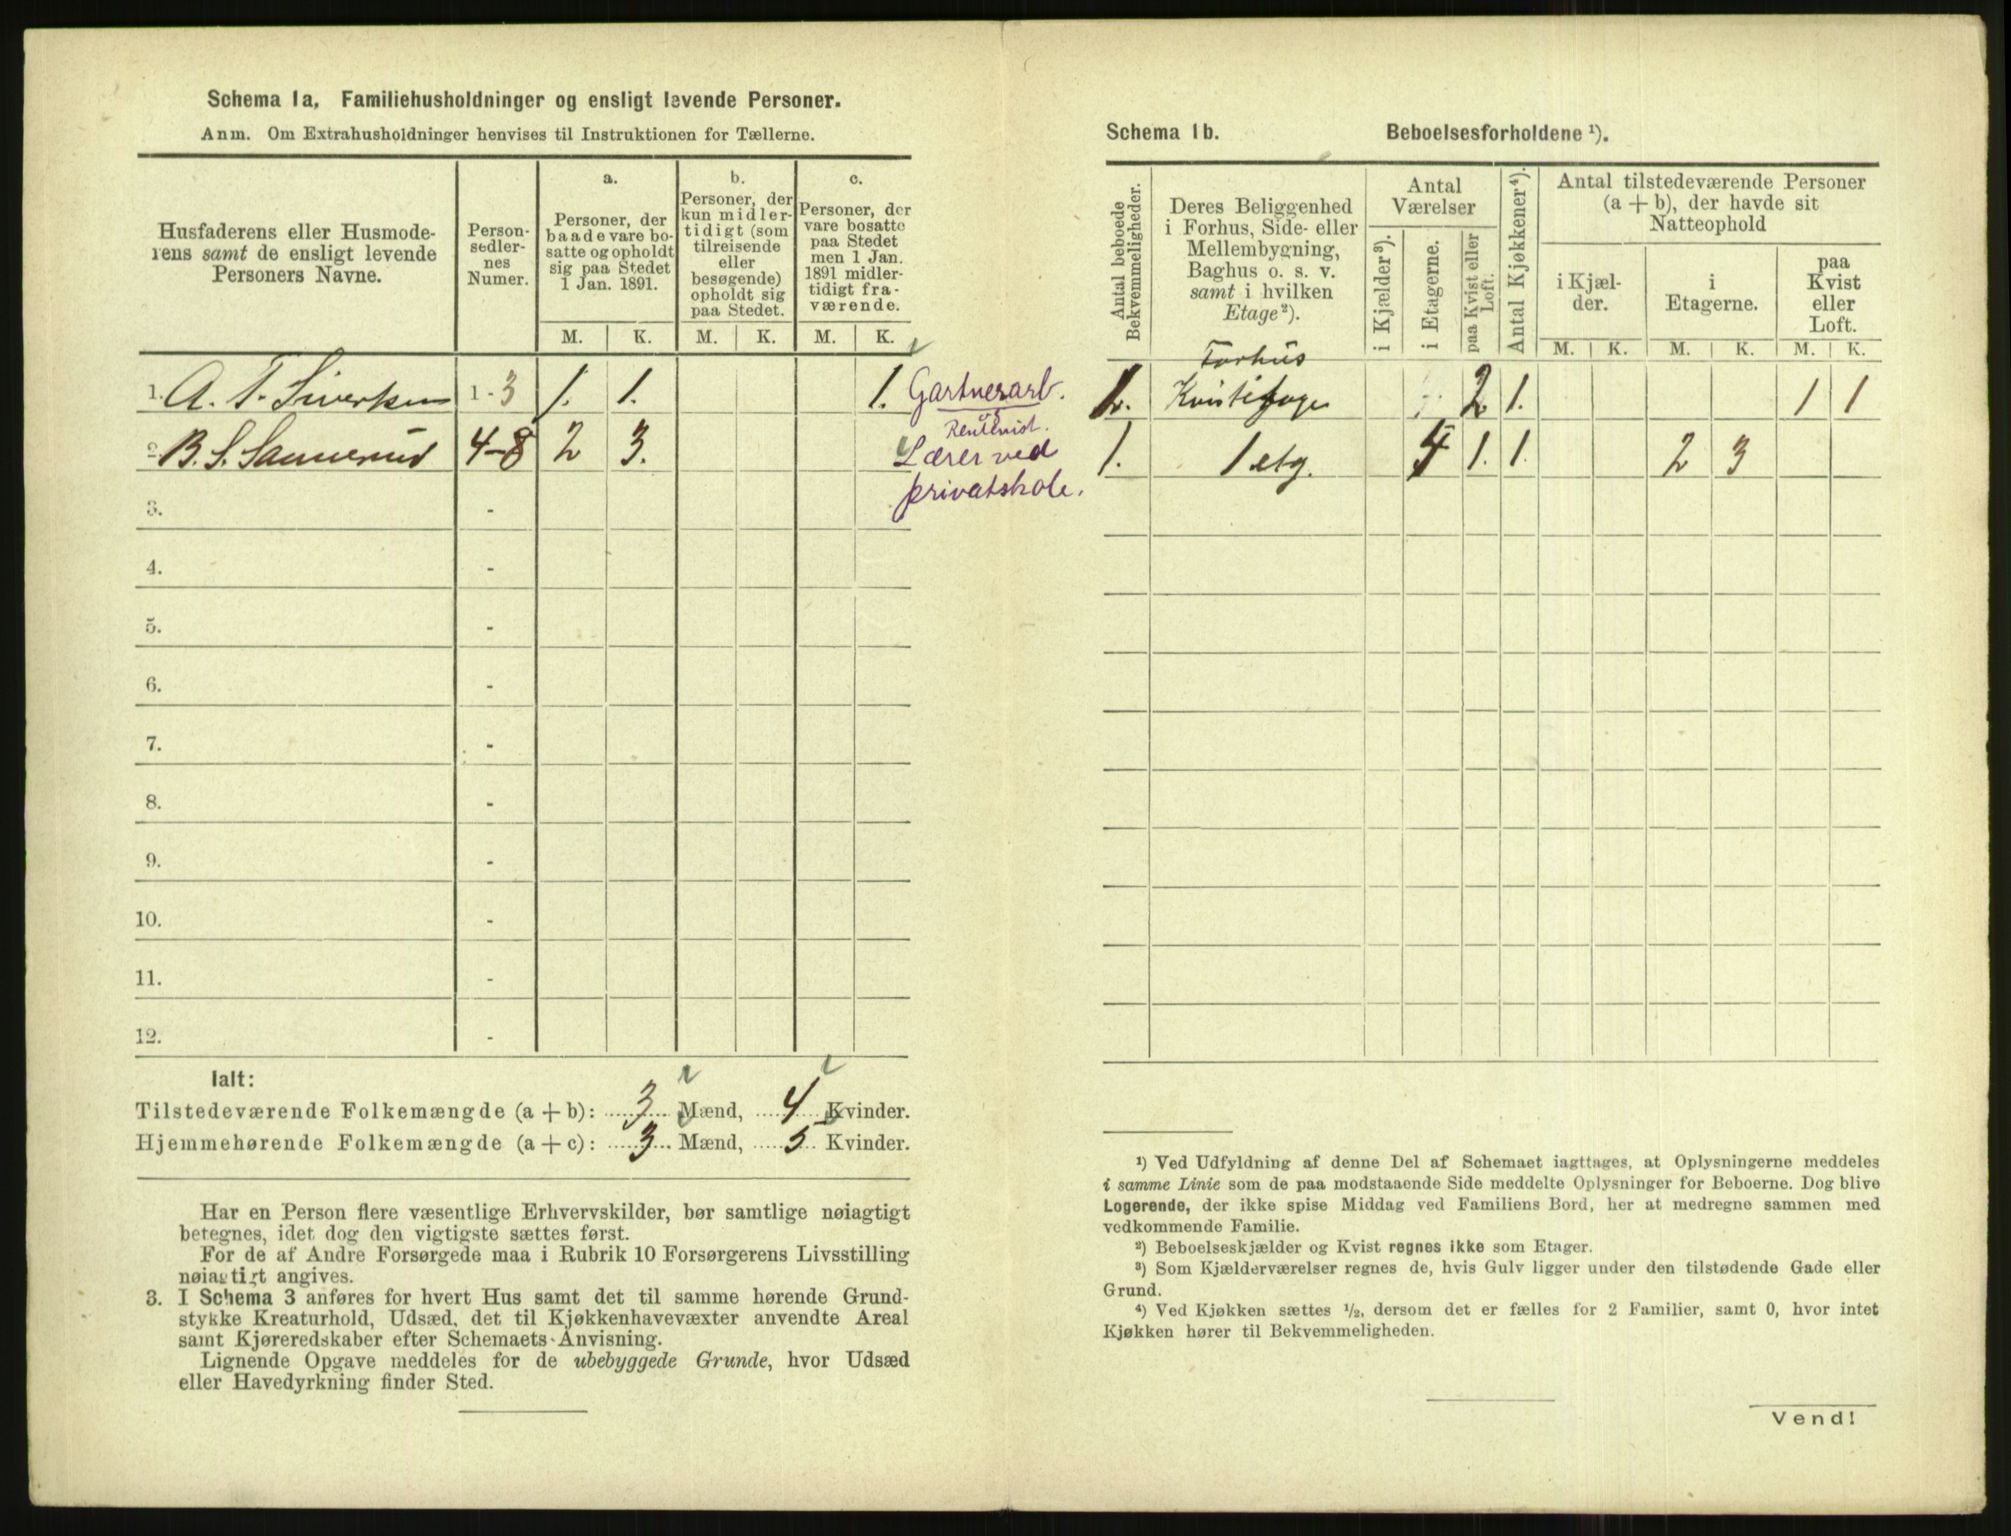 Schema 1a, Familiehusholdninger og ensligt levende Personer.
Anm. Om Extrahusholdninger henvises til Instruktionen for Tællerne.
Husfaderens eller Husmode-
rens samt de ensligt levende
Personers Navne.
Person-
sedler-
nes
Numer.
a.
Personer, der
baade vare bo-
satte og opholdt
sig paa Stedet
1 Jan. 1891.
b.
Personer, der
kun midler-
tidigt (som
tilreisende
eller
besøgende)
opholdt sig
paa Stedet.
c.
Personer, der
vare bosatte
paa Stedet
men 1 Jan.
1891 midler-
tidigt fra-
værende.
M. K. M. K. M. K.
1. A. T. Siverksen 1-3 1. 1. 1. Gartnerarb.
2 B. S. Sannerud 4-8 2 3. Lærer ved
privatskole.
3. -
4. -
5. -
6. -
7. -
8. -
9. -
10. -
11. -
12. -
Ialt:
Tilstedeværende Folkemængde (a + b): 3 Mænd, 4 Kvinder.
Hjemmehørende Folkemængde (a + c): 3 Mænd, 5 Kvinder.
Har en Person flere væsentlige Erhvervskilder, bør samtlige nøiagtigt
betegnes, idet dog den vigtigste sættes først.
For de af Andre Forsørgede maa i Rubrik 10 Forsørgerens Livsstilling
nøiagtigt angives.
3. I Schema 3 anføres for hvert Hus samt det til samme hørende Grund-
stykke Kreaturhold, Udsæd, det til Kjøkkenhavevæxter anvendte Areal
samt Kjøreredskaber efter Schemaets Anvisning.
Lignende Opgave meddeles for de ubebyggede Grunde, hvor Udsæd
eller Havedyrkning finder Sted.
Schema 1b. Beboelsesforholdene ¹).
Antal beboede
Bekvemmeligheder.
Deres Beliggenhed
i Forhus, Side- eller
Mellembygning,
Baghus o. s. v.
samt i hvilken
Etage²).
Antal
Værelser
i Kjælder³).
i Etagerne.
paa Kvist eller
Loft.
Antal Kjøkkener⁴).
Antal tilstedeværende Personer
(a + b), der havde sit
Natteophold
i Kjæl-
der.
i
Etagerne.
paa
Kvist
eller
Loft.
M. K. M. K. M. K.
Forhus
1. Kvistetage 2 1. 1 1
1. 1 etg. 4 1. 1. 2 3
¹) Ved Udfyldning af denne Del af Schemaet iagttages, at Oplysningerne meddeles
i samme Linie som de paa modstaaende Side meddelte Oplysninger for Beboerne. Dog blive
Logerende, der ikke spise Middag ved Familiens Bord, her at medregne sammen med
vedkommende Familie.
²) Beboelseskjælder og Kvist regnes ikke som Etager.
³) Som Kjælderværelser regnes de, hvis Gulv ligger under den tilstødende Gade eller
Grund.
⁴) Ved Kjøkken sættes ½, dersom det er fælles for 2 Familier, samt 0, hvor intet
Kjøkken hører til Bekvemmeligheden.
Vend!